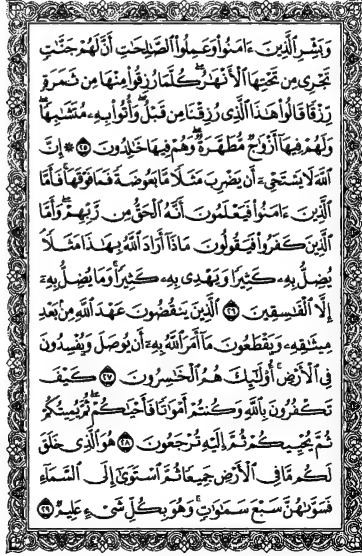 وَبَشِّرِ الَّذِينَ ءَامَنُوا وَعَمِلُوا الصَّٰلِحَٰتِ أَنَّ لَهُمْ جَنَّٰتٍ
تَجْرِى مِن تَحْتِهَا الْأَنْهَٰرُ ۖ كُلَّمَا رُزِقُوا مِنْهَا مِن ثَمَرَةٍ
رِّزْقًا ۙ قَالُوا هَٰذَا الَّذِى رُزِقْنَا مِن قَبْلُ ۖ وَأُتُوا بِهِۦ مُتَشَٰبِهًا ۖ
وَلَهُمْ فِيهَا أَزْوَٰجٌ مُّطَهَّرَةٌ ۖ وَهُمْ فِيهَا خَٰلِدُونَ ۝٢٥ ۞ إِنَّ
اللَّهَ لَا يَسْتَحْىِۦ أَن يَضْرِبَ مَثَلًا مَّا بَعُوضَةً فَمَا فَوْقَهَا ۚ فَأَمَّا
الَّذِينَ ءَامَنُوا فَيَعْلَمُونَ أَنَّهُ الْحَقُّ مِن رَّبِّهِمْ ۖ وَأَمَّا
الَّذِينَ كَفَرُوا فَيَقُولُونَ مَاذَا أَرَادَ اللَّهُ بِهَٰذَا مَثَلًا ۘ
يُضِلُّ بِهِۦ كَثِيرًا وَيَهْدِى بِهِۦ كَثِيرًا ۚ وَمَا يُضِلُّ بِهِۦٓ
إِلَّا الْفَٰسِقِينَ ۝٢٦ الَّذِينَ يَنقُضُونَ عَهْدَ اللَّهِ مِن بَعْدِ
مِيثَٰقِهِۦ وَيَقْطَعُونَ مَا أَمَرَ اللَّهُ بِهِۦٓ أَن يُوصَلَ وَيُفْسِدُونَ
فِى الْأَرْضِ ۚ أُولَٰٓئِكَ هُمُ الْخَٰسِرُونَ ۝٢٧ كَيْفَ
تَكْفُرُونَ بِاللَّهِ وَكُنتُمْ أَمْوَٰتًا فَأَحْيَٰكُمْ ۖ ثُمَّ يُمِيتُكُمْ
ثُمَّ يُحْيِيكُمْ ثُمَّ إِلَيْهِ تُرْجَعُونَ ۝٢٨ هُوَ الَّذِى خَلَقَ
لَكُم مَّا فِى الْأَرْضِ جَمِيعًا ثُمَّ اسْتَوَىٰٓ إِلَى السَّمَآءِ
فَسَوَّىٰهُنَّ سَبْعَ سَمَٰوَٰتٍ ۚ وَهُوَ بِكُلِّ شَىْءٍ عَلِيمٌ ۝٢٩